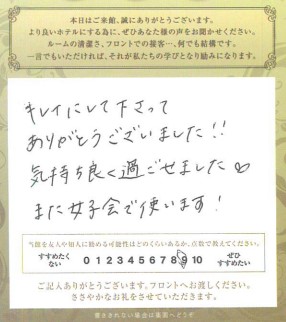 本日はご来館、誠にありがとうございます。
より良いホテルにする為に、ぜひあなた様の声をお聞かせください。
ルームの清潔さ、フロントでの接客…、何でも結構です。
一言でもいただければ、それが私たちの学びとなり励みになります。
キレイにして下さって
ありがとうございました!!
気持ち良く過ごせました♡
また女子会で使います!
当館を友人や知人に勧める可能性はどのくらいあるか、点数で教えてください。
すすめたくない 0 1 2 3 4 5 6 7 8 9 10 ぜひすすめたい
ご記入ありがとうございます。フロントへお渡しください。
ささやかなお礼をさせていただきます。
書ききれない場合は裏面へどうぞ